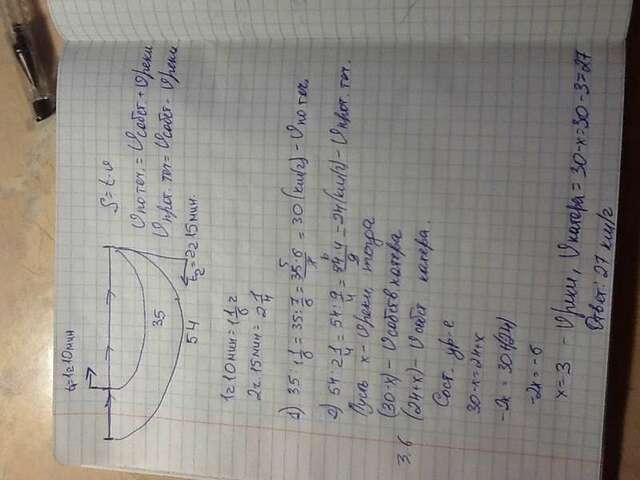 t₁=1ч10мин
S=t·v
Vпо теч.=Vсобст.+Vреки
Vпрот. теч=Vсобст-Vреки
35
54
t₂=2ч15мин.
1ч10мин=1 1/6 ч
2ч.15мин=2 1/4
1) 35:1 1/6=35:7/6=35·6/7=30(км/ч)-Vпо теч.
2) 54:2 1/4=54:9/4=54·4/9=24(км/ч)-Vпрот. теч.
Пусть х-Vреки, тогда
(30-х)-Vсобств катера
3.6
(24+х)-Vсобст катера.
Сост. ур-е
30-х=24+х
-2х=-6
х=3 - Vреки, Vкатера=30-х=30-3=27
Ответ: 27 км/ч